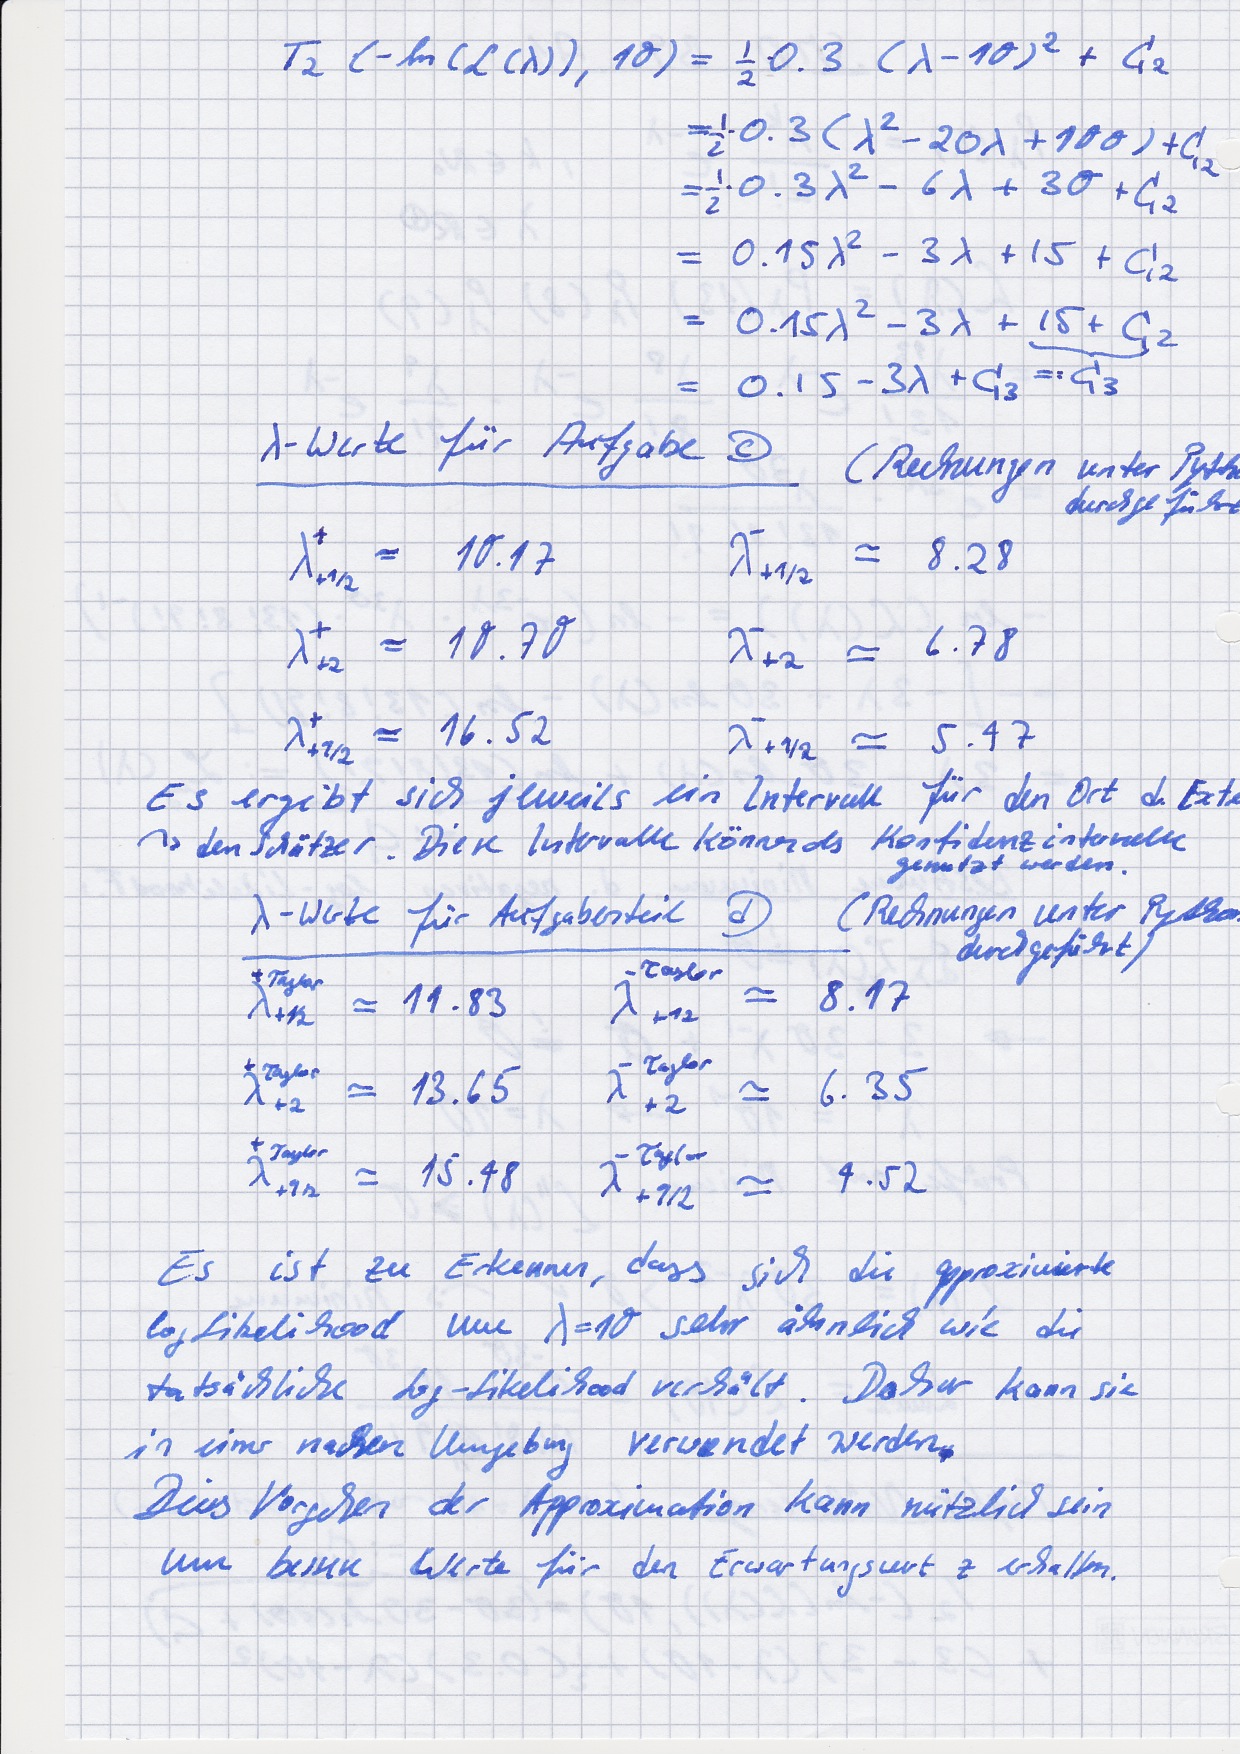 T₂ (-ln(L(λ)), 10) = ½·0.3 (λ-10)² + C₂
= ½·0.3 (λ² - 20λ + 100) + C₂
= ½·0.3λ² - 6λ + 30 + C₂
= 0.15λ² - 3λ + 15 + C₂
= 0.15λ² - 3λ + 15 + C₂
= 0.15 - 3λ + C₃ =: C₃
λ-Werte für Aufgabe c (Rechnungen unter Pytho
durchgeführt
λ⁺₊₁/₂ ≃ 10.17 λ⁻₊₁/₂ ≃ 8.28
λ⁺₊₂ ≃ 10.70 λ⁻₊₂ ≃ 6.78
λ⁺₊₉/₂ ≃ 16.52 λ⁻₊₉/₂ ≃ 5.47
Es ergibt sich jeweils ein Intervall für den Ort d. Extr
↝ den Schätzer. Diese Intervalle können als Konfidenzintervalle
genutzt werden.
λ-Werte für Aufgabenteil d (Rechnungen unter Python
durchgeführt)
λ⁺ Taylor ₊₁/₂ ≃ 11.83 λ⁻ Taylor ₊₁/₂ ≃ 8.17
λ⁺ Taylor ₊₂ ≃ 13.65 λ⁻ Taylor ₊₂ ≃ 6.35
λ⁺ Taylor ₊₉/₂ ≃ 15.48 λ⁻ Taylor ₊₉/₂ ≃ 4.52
Es ist zu Erkennen, dass sich die approximierte
log Likelihood um λ=10 sehr ähnlich wie die
tatsächliche Log-Likelihood verhält. Daher kann sie
in einer nahen Umgebung verwendet werden.
Dies Vorgehen der Approximation kann nützlich sein
um bessere Werte für den Erwartungswert z erhalten.